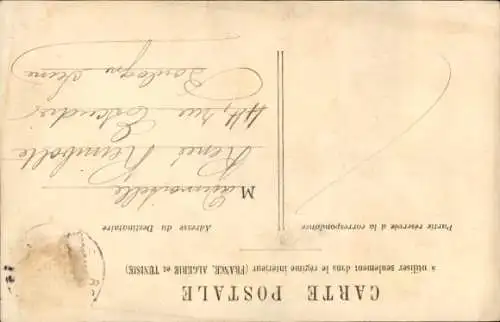 CARTE POSTALE
à utiliser seulement dans le régime intérieur (FRANCE, ALGERIE et TUNISIE)
Partie réservée à la correspondance
Adresse du Destinataire
M ademoiselle
Renée
44, rue
Boulogne Seine